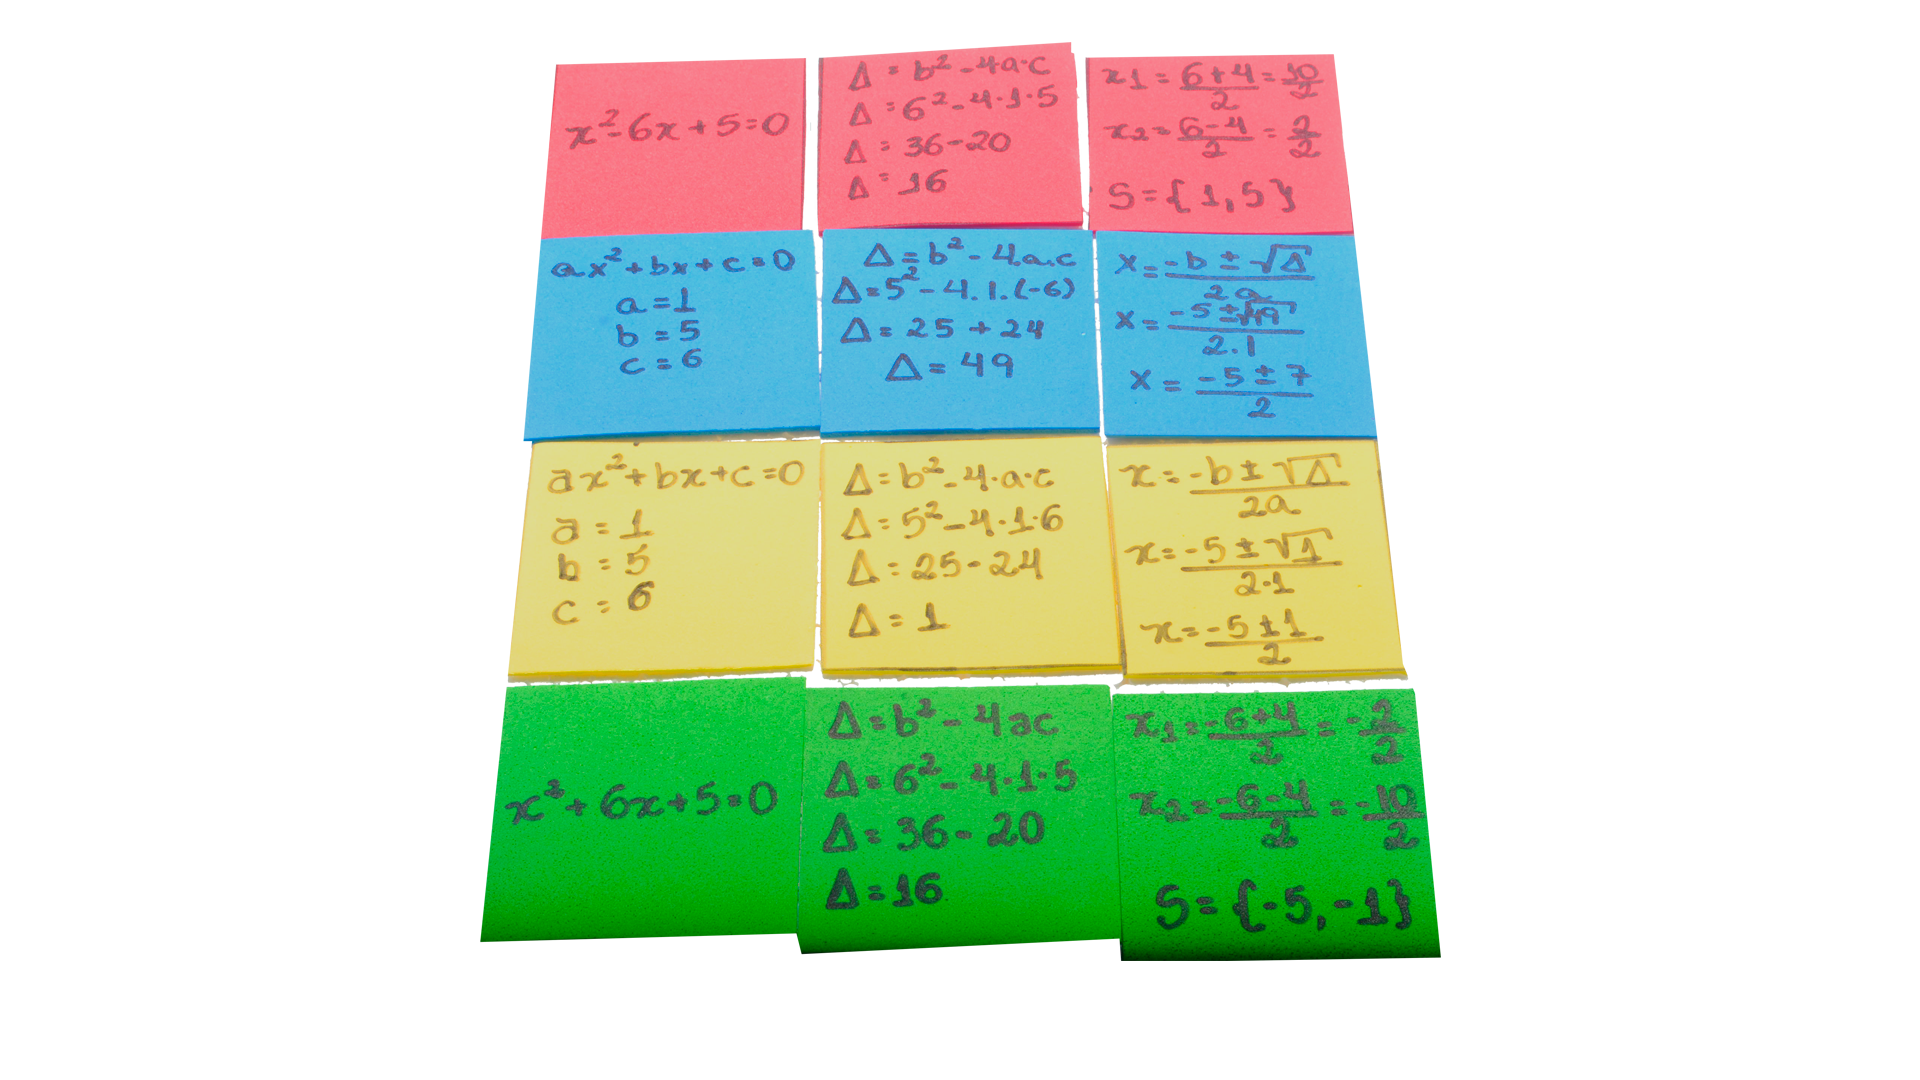 x²-6x+5=0
Δ = b²-4a·c
Δ = 6²-4·1·5
Δ = 36-20
Δ = 16
x1 = 6+4/2 = 10/2
x2 = 6-4/2 = 2/2
S={1,5}
ax²+bx+c=0
a=1
b=5
c=6
Δ=b²-4.a.c
Δ=5²-4.1.(-6)
Δ=25+24
Δ=49
x=-b±√Δ/2a
x=-5±√49/2.1
x=-5±7/2
ax²+bx+c=0
a=1
b=5
c=6
Δ=b²-4·a·c
Δ=5²-4·1·6
Δ=25-24
Δ=1
x=-b±√Δ/2a
x=-5±√1/2·1
x=-5±1/2
x²+6x+5=0
Δ=b²-4ac
Δ=6²-4·1·5
Δ=36-20
Δ=16
x1=-6+4/2=-2/2
x2=-6-4/2=-10/2
S={-5,-1}